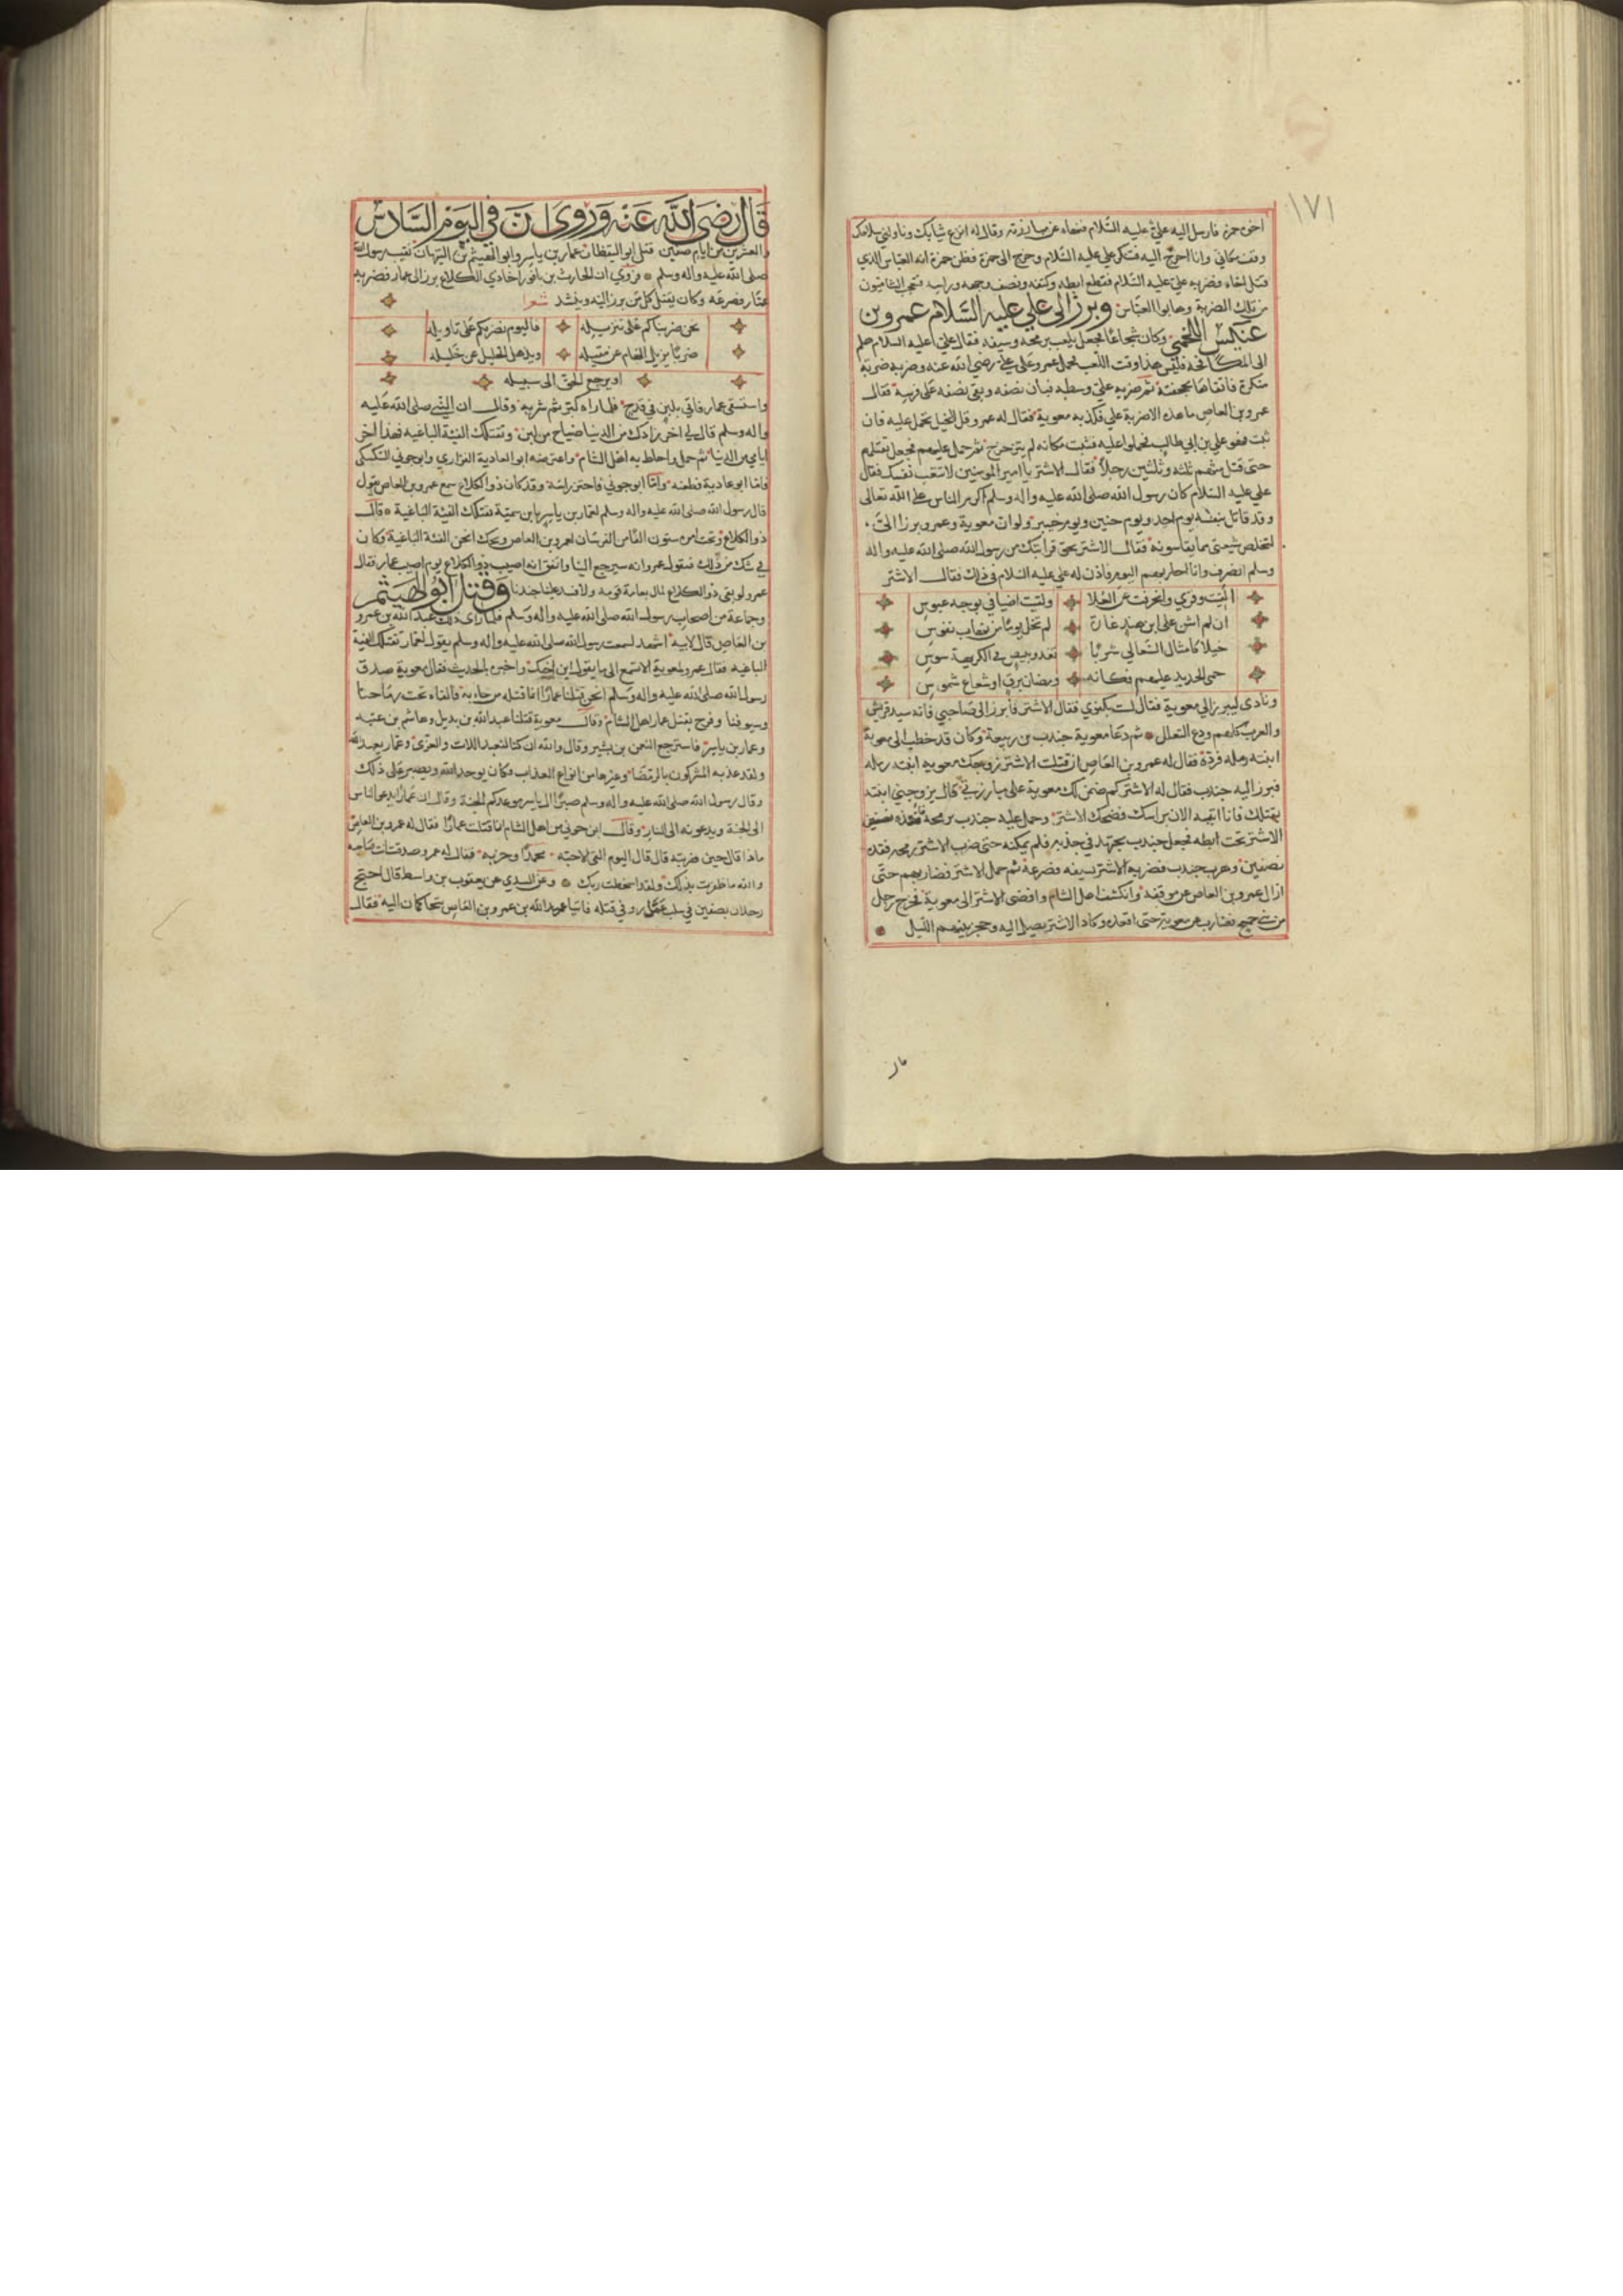 ١٧١
اخى حمزة فارسل اليه علي عليه السلام فنهاه عن مبارزته وقال له انزع ثيابك وناولني سلاحك
وقف مكاني وانا اخرج اليه فتنكر علي عليه السلام وخرج الى حمزة فظن حمزة انه العباس الذي
قتل اخاه فضربه علي عليه السلام فقطع ابطه وكتفه ونصف وجهه وراسه فتعجب الشاميون
من تلك الضربة وهابوا العباس وبرز الى علي عليه السلام عمرو بن
عنكس اللخمي وكان شجاعا فجعل يلعب برمحه وسيفه فقال علي عليه السلام هلم
الى فليس هذا وقت اللعب فحمل عمرو على علي رضي الله عنه وضربه ضربة
منكرة فاتقاها بجحفته ثم ضربه علي وسطه فبان نصفه وبقى نصفه على فرسه فقال
عمرو بن العاص ما هذه الا ضربة علي فكذبه معوية فقال له عمرو قل للخيل تحمل عليه فان
ثبت فهو علي بن ابي طالب فحملوا عليه فثبت مكانه لم يتزحزح ثم حمل عليهم فجعل يقتلهم
حتى قتل منهم ثلثه وثلثين رجلا فقال الاشتر يا امير المومنين لا تتعب نفسك فقال
علي عليه السلام كان رسول الله صلى الله عليه واله وسلم اكرم الناس على الله تعالى
وقد قاتل بنفسه يوم احد ويوم حنين ويوم خيبر ولو ان معوية وعمرو برزا الى
لتخلص شيعتى مما يقاسونه فقال الاشتر بحق قرابتك من رسول الله صلى الله عليه واله
وسلم انصرف وانا احاربهم اليوم فاذن له علي عليه السلام في ذلك فقال الاشتر
بقيت وفري وانحرفت عن العلا ولقيت اضيافي بوجه عبوس
ان لم اشن على ابن هند غارة لم تخل يوما من نهاب نفوس
خيلا كامثال السعالي شربا تغدو ببيض في الكريهة سوس
حمى الحديد عليهم فكانه ومضان برق او شعاع شموس
ونادى ليبرز الي معوية فقال لست بكفوي فقال الاشتر فابرز الى صاحبي فانه سيد قريش
والعرب كلهم ودع التعلل ثم دعا معوية جندب بن ربيعة وكان قد خطب الى معوية
ابنته رمله فردة فقال له عمرو بن العاص ان قتلت الاشتر زوجك معويه ابنته رمله
فبرز اليه جندب فقال له الاشتر كم ضمن لك معوية على مبارزتي قال يزوجني ابنته
بقتلك فانا اتيه الان براسك فضحك الاشتر وحمل عليه جندب برمحه
الاشتر تحت ابطه فجعل جندب يجتهد في جذبه فلم يمكنه حتى ضرب الاشتر رمحه فقده
نصفين وهرب جندب فضربه الاشتر بسيفه فصرعه ثم حمل الاشتر فضاربهم حتى
ازال عمرو بن العاص عن موقفه وانكشف اهل الشام وافضى الاشتر الى معوية فخرج رجل
من بني جمح فضارب عن معوية حتى انقذه وكاد الاشتر يصل اليه وحجز بينهم الليل
قال
قال رضى الله عنه وروى ان في اليوم السادس
والعشرين من ايام صفين قتل ابو اليقظان عمار بن ياسر وابو الهيثم بن التيهان نقيب رسول الله
صلى الله عليه واله وسلم وروي ان الحارث بن اخا ذي الكلاع برز الى عمار فضربه
عمار فصرعه وكان يقتل كل من برز اليه وينشد شعرا
نحن ضربناكم على تنزيله فاليوم نضربكم على تاويله
ضربا يزيل الهام عن مقيله ويذهل الخليل عن خليله
او يرجع الحق الى سبيله
واستسقى عمار فاتي بلبن في قدح فلما راه كبر ثم شربه وقال ان النبي صلى الله عليه
واله وسلم قال لي اخر زادك من الدنيا ضياح من لبن وتقتلك الفئة الباغيه فهذا اخر
ايامي من الدنيا ثم حمل واحاط به اهل الشام واعترضه ابو العادية الفزاري وابو جوني السكسكى
فاما ابو عادية فطعنه واما ابو جوني فاحتز راسه وقد كان ذو الكلاع سمع عمرو بن العاص يقول
قال رسول الله صلى الله عليه واله وسلم لعمار بن ياسر يا بن سمية تقتلك الفئة الباغية قال
ذو الكلاع وتحت امره ستون الفا من الفرسان لعمرو بن العاص ويحك انحن الفئة الباغية وكان
في شك من ذلك فيقول عمرو انه سيرجع الينا واتفق انه اصيب ذو الكلاع يوم اصيب عمار فقال
عمرو لو بقى ذو الكلاع لمال بعامة قومه ولافسد علينا جندنا وقتل ابو الهيثم
وجماعة من اصحاب رسول الله صلى الله عليه واله وسلم فلما راى ذلك عبد الله بن عمرو
بن العاص قال لابيه اشهد لسمعت رسول الله صلى الله عليه واله وسلم يقول لعمار تقتلك الفئة
الباغيه فقال عمرو لمعوية الا تسمع الى ما يقول ابن اخيك واخبره بالحديث فقال معوية صدق
رسول الله صلى الله عليه واله وسلم انحن قتلنا عمارا انما قتله من جاء به فالقاه تحت رماحنا
وسيوفنا وفرح بقتل عمار اهل الشام وقال معوية قتلنا عبد الله بن بديل وهاشم بن عتبه
وعمار بن ياسر فاسترجع النعمن بن بشير وقال والله ان كنا لنعبد اللات والعزى وعمار يعبد الله
ولقد عذبه المشركون بالرمضا وغيرها من انواع العذاب فكان يوحد الله ويصبر على ذلك
وقال رسول الله صلى الله عليه واله وسلم صبرا ال ياسر موعدكم الجنة وقال ان عمارا يدعو الناس
الى الجنة ويدعونه الى النار وقال ابن جوني من اهل الشام انا قتلت عمارا فقال له عمرو بن العاص
ماذا قال حين ضربته قال قال اليوم القى الاحبه محمدا وحزبه فقال له عمرو صدقت انت صاحبه
والله ما ظفرت بذلك ولقد اسخطت ربك وعن السدي عن يعقوب بن واسط قال احتج
رجلان بصفين في سلب عمار وفي قتله فاتيا عبد الله بن عمرو بن العاص يتحاكمان اليه فقال